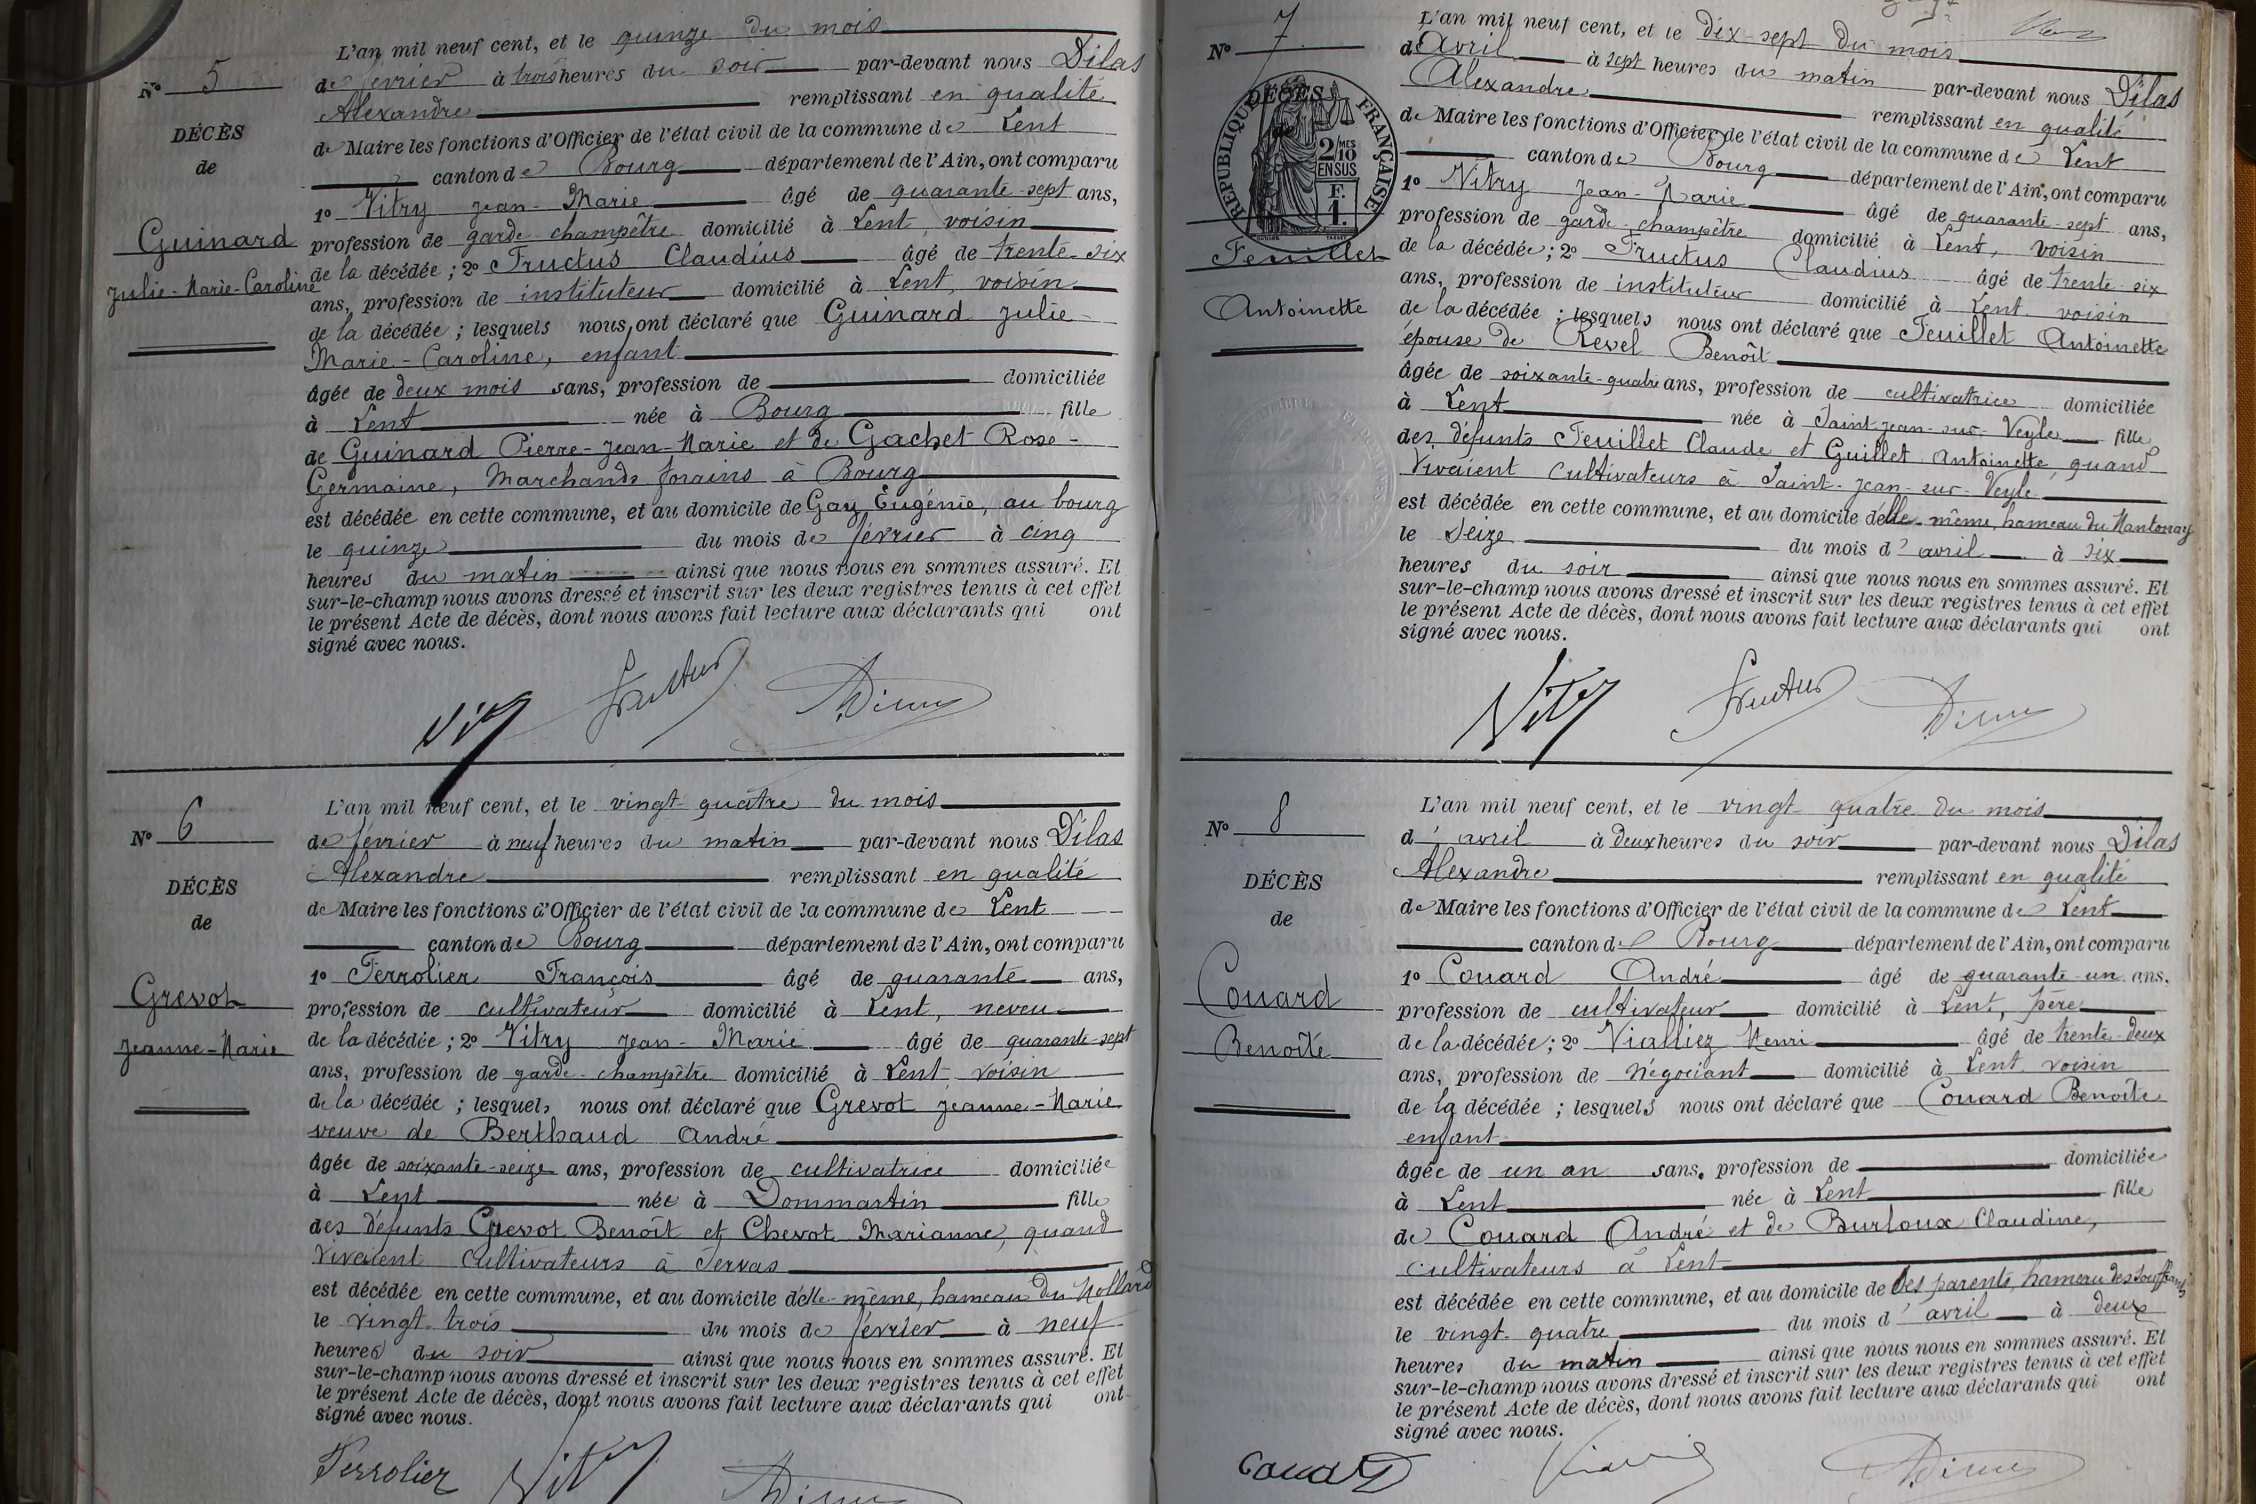 L'an mil neuf cent, et le quinze du mois
N° 5
de février à trois heures du soir par-devant nous Dilas
Alexandre remplissant en qualité
DÉCÈS
de Maire les fonctions d'Officier de l'état civil de la commune de Lent
de
canton de Bourg département de l'Ain, ont comparu
1° Vitry Jean-Marie âgé de quarante-sept ans,
Guinard
profession de garde-champêtre domicilié à Lent, voisin
de la décédée; 2° Fructus Claudius âgé de trente-six
Julie-Marie-Caroline
ans, profession de instituteur domicilié à Lent, voisin
de la décédée; lesquels nous ont déclaré que Guinard Julie-
Marie-Caroline, enfant
âgée de deux mois sans, profession de domiciliée
à Lent née à Bourg fille
de Guinard Pierre-Jean-Marie et de Gachet Rose-
Germaine, Marchands forains à Bourg
est décédée en cette commune, et au domicile de Gay Eugénie, au bourg
le quinze du mois de février à cinq
heures du matin ainsi que nous nous en sommes assuré. Et
sur-le-champ nous avons dressé et inscrit sur les deux registres tenus à cet effet
le présent Acte de décès, dont nous avons fait lecture aux déclarants qui ont
signé avec nous.
Vitry Fructus
L'an mil neuf cent, et le vingt-quatre du mois
N° 6
de février à neuf heures du matin par-devant nous Dilas
Alexandre remplissant en qualité
DÉCÈS
de Maire les fonctions d'Officier de l'état civil de la commune de Lent
de
canton de Bourg département de l'Ain, ont comparu
1° Ferrolier François âgé de quarante ans,
Grevot
profession de cultivateur domicilié à Lent, neveu
Jeanne-Marie
de la décédée; 2° Vitry Jean-Marie âgé de quarante-sept
ans, profession de garde-champêtre domicilié à Lent, voisin
de la décédée; lesquels nous ont déclaré que Grevot Jeanne-Marie
veuve de Berthaud André
âgée de soixante-seize ans, profession de cultivatrice domiciliée
à Lent née à Dommartin fille
des défunts Grevot Benoît et Chevot Marianne, quand
vivaient cultivateurs à Servas
est décédée en cette commune, et au domicile d'elle-même, hameau du Mollard
le vingt-trois du mois de février à neuf
heures du soir ainsi que nous nous en sommes assuré. Et
sur-le-champ nous avons dressé et inscrit sur les deux registres tenus à cet effet
le présent Acte de décès, dont nous avons fait lecture aux déclarants qui ont
signé avec nous.
Ferrolier Vitry
L'an mil neuf cent, et le dix-sept du mois
N° 7
d'avril à sept heures du matin par-devant nous Dilas
Alexandre remplissant en qualité
DÉCÈS
RÉPUBLIQUE FRANÇAISE
2/10 MES
EN SUS
F.
1.
de Maire les fonctions d'Officier de l'état civil de la commune de Lent
canton de Bourg département de l'Ain, ont comparu
1° Vitry Jean-Marie âgé de quarante-sept ans,
profession de garde-champêtre domicilié à Lent, voisin
Feuillet
de la décédée; 2° Fructus Claudius âgé de trente-six
ans, profession de instituteur domicilié à Lent, voisin
Antoinette
de la décédée; lesquels nous ont déclaré que Feuillet Antoinette
épouse de Revel Benoît
âgée de soixante-quatre ans, profession de cultivatrice domiciliée
à Lent née à Saint-Jean-sur-Veyle fille
des défunts Feuillet Claude et Guillet Antoinette, quand
vivaient cultivateurs à Saint-Jean-sur-Veyle
est décédée en cette commune, et au domicile d'elle-même, hameau du Mantonay
le seize du mois d'avril à six
heures du soir ainsi que nous nous en sommes assuré. Et
sur-le-champ nous avons dressé et inscrit sur les deux registres tenus à cet effet
le présent Acte de décès, dont nous avons fait lecture aux déclarants qui ont
signé avec nous.
Vitry Fructus
L'an mil neuf cent, et le vingt-quatre du mois
N° 8
d'avril à deux heures du soir par-devant nous Dilas
Alexandre remplissant en qualité
DÉCÈS
de Maire les fonctions d'Officier de l'état civil de la commune de Lent
de
canton de Bourg département de l'Ain, ont comparu
1° Couard André âgé de quarante-un ans.
Couard
profession de cultivateur domicilié à Lent, père
Benoîte
de la décédée; 2° Vialliez Henri âgé de trente-deux
ans, profession de négociant domicilié à Lent, voisin
de la décédée; lesquels nous ont déclaré que Couard Benoîte
enfant
âgée de un an sans. profession de domiciliée
à Lent née à Lent fille
de Couard André et de Burloux Claudine,
cultivateurs à Lent
est décédée en cette commune, et au domicile de ses parents, hameau des
le vingt-quatre du mois d'avril à deux
heures du matin ainsi que nous nous en sommes assuré. Et
sur-le-champ nous avons dressé et inscrit sur les deux registres tenus à cet effet
le présent Acte de décès, dont nous avons fait lecture aux déclarants qui ont
signé avec nous.
Couard